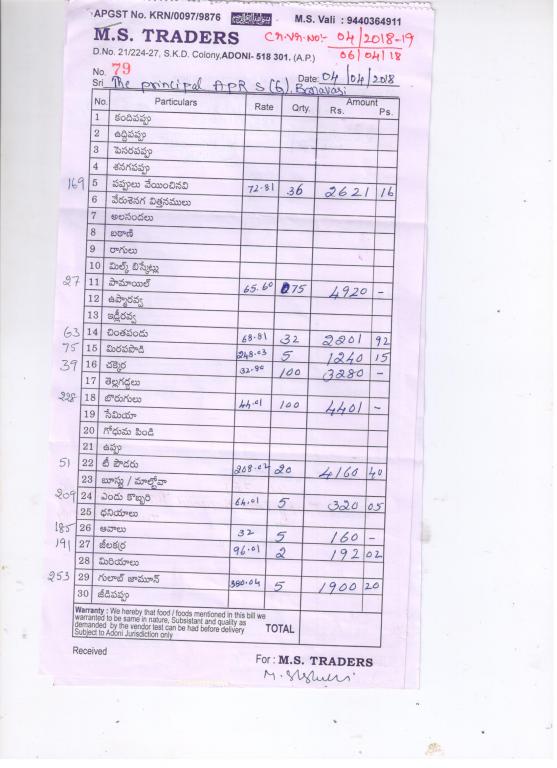 APGST No. KRN/0097/9876 M.S. Vali : 9440364911
M.S. TRADERS
04/2018-19
D.No. 21/224-27, S.K.D. Colony, ADONI- 518 301. (A.P.)
06/04/18
No. 79 Date: 04/04/2018
Sri The principal APRS (G), Banavasi
No. Particulars Rate Qrty. Amount
Rs. Ps.
1 కందిపప్పు
2 ఉద్దిపప్పు
3 పెసరపప్పు
4 శనగపప్పు
169 5 పప్పులు వేయించినవి 72.81 36 2621 16
6 వేరుశెనగ విత్తనములు
7 అలసందలు
8 బఠాణి
9 రాగులు
10 మిల్క్ బిస్కెట్లు
27 11 పామాయిల్ 65.60 75 4920 -
12 ఉప్మారవ్వ
13 ఇడ్లీరవ్వ
63 14 చింతపండు 68.81 32 2201 92
75 15 మిరపపొడి 248.03 5 1240 15
39 16 చక్కెర 32.80 100 3280 -
17 తెల్లగడ్డలు
228 18 బొరుగులు 44.01 100 4401 -
19 సేమియా
20 గోధుమ పిండి
21 ఉప్పు
51 22 టీ పౌడరు 208.02 20 4160 40
23 బూస్టు / మాల్టోవా
209 24 ఎండు కొబ్బరి 64.01 5 320 05
25 ధనియాలు
185 26 ఆవాలు 32 5 160 -
191 27 జీలకర్ర 96.01 2 192 02
28 మిరియాలు
253 29 గులాబ్ జామూన్ 380.04 5 1900 20
30 జీడిపప్పు
Warranty : We hereby that food / foods mentioned in this bill we
warranted to be same in nature, Subsistant and quality as
demanded by the vendor test can be had before delivery TOTAL
Subject to Adoni Jurisdiction only
Received
For : M.S. TRADERS